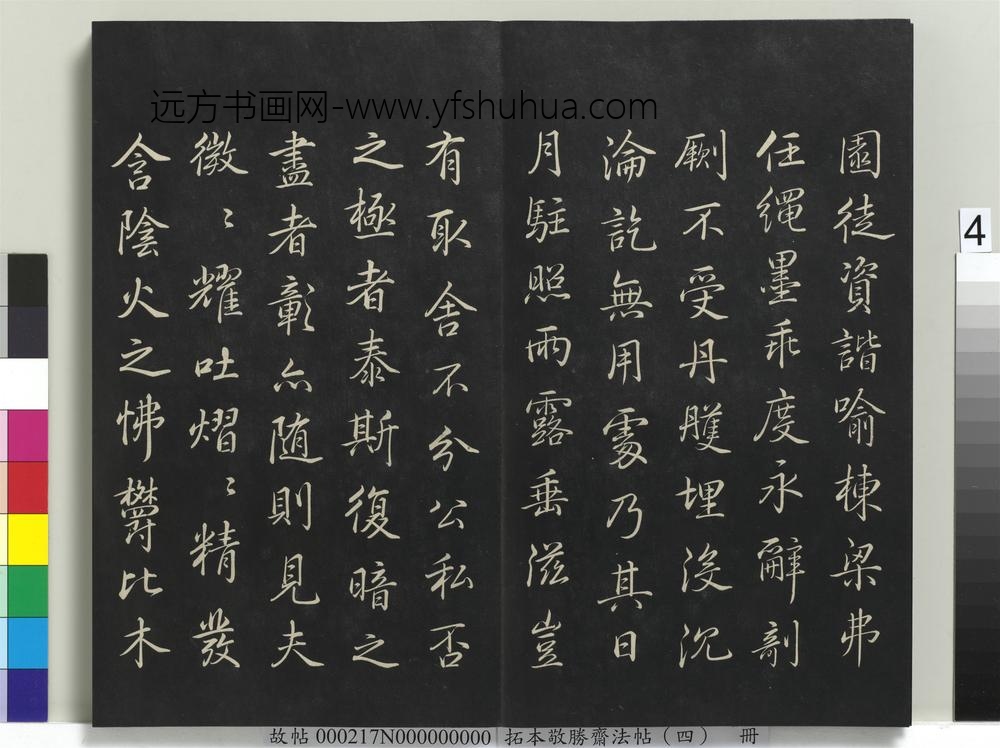 远方书画网-www.yfshuhua.com
園徒資諧喻棟梁弗
任繩墨乖度永辭剞
劂不受丹雘埋沒沉
淪訖無用處乃其日
月駐照雨露垂滋豈
有取舍不分公私否
之極者泰斯復暗之
盡者彰亦随則見夫
微〻耀吐熠〻精發
含陰火之怫欝比木
4
故帖 000217N000000000 拓本敬勝齋法帖(四) 冊